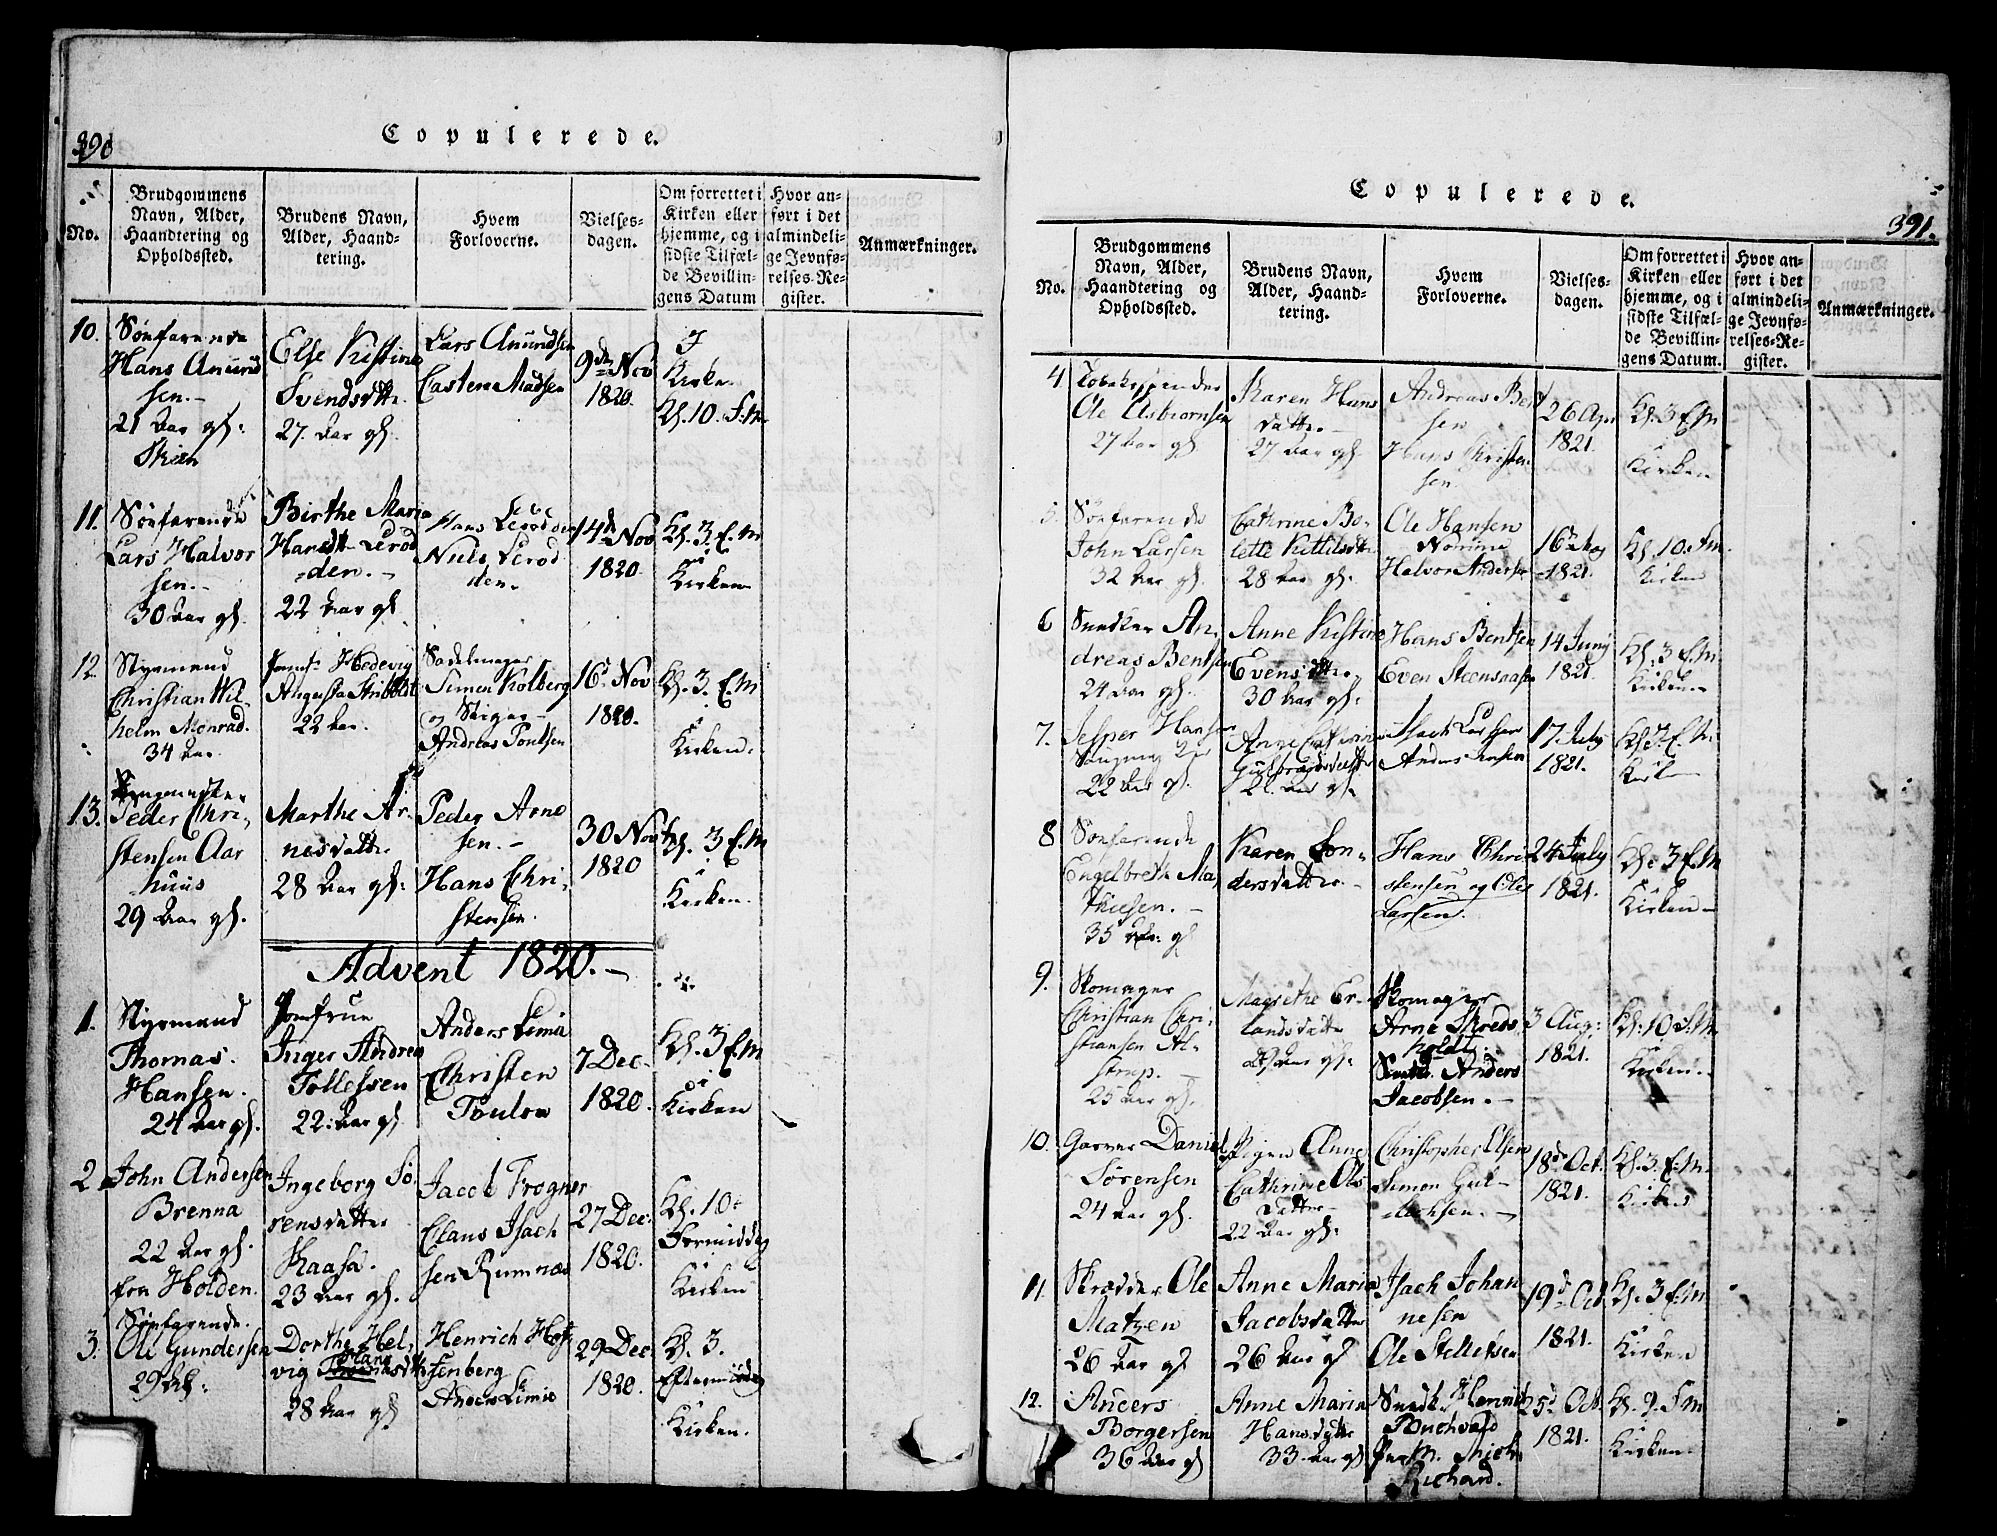 390
Copulerede.
No.
Brudgommens
Navn, Alder,
Haandtering og
Opholdssted.
Brudens Navn,
Alder, Haand-
tering.
Hvem
Forloverne.
Vielses-
dagen.
Om forrettet i
Kirken eller
hjemme, og i
sidste Tilfæl-
de Bevillin-
gens Datum
Hvor an-
ført i det
almindeli-
ge Jevnfø-
relses-Re-
gister.
Anmærkninger.
10.
Søefarende
Hans Amund
sen.-
21 Aar gl:
Skien
Else Kistine
Svendsdtr
27. Aar gl.
Lars Amundsen
Casten Madsen
9de Nov
1820.
I
Kirken
Kl. 10. F.M.
11.
Søefarende
Lars Halvor
sen.-
30 Aar gl.
Birthe Maria
Hansdt Lerod
den.-
22 Aar gl.
Hans Lerodden
Niels Lerod
den.
14d Nov
1820.
Kl. 3. E.M
i
Kirken
12.
Styrmand
Christian Wil-
helm Monrad.
34 Aar.
Jomfr Hedevig
Augusta Stribolt
22 Aar.
Sadelmager
Simen Kolberg
og
Andreas Poulsen
16d Nov
1820.
Kl. 3. E.M
i
Kirken.
13.
Peder Chri-
stensen Aar
huus
29 Aar gl.
Marthe Ar-
nesdatter
28 Aar gl:
Peder Arne
sen.-
Hans Chri-
stensen.
30 Nov
1820
Kl. 3 E.M
i
Kirken.
Advent 1820.-
1.
Styrmand
Thomas.
Hansen.
24 Aar gl.
Jomfrue
Inger Andrea
Tollessen
22: Aar gl
Anders Limie
Christen
7 Dec-
1820.
Kl. 3 E.M
i
Kirken
2
John Andersen
Brenna
22 Aar gl.
fra Holden.
Ingeborg Sø-
rensdatter
Kaasa.
23 Aar gl.
Jacob Frogner
Claus Isach
sen Rumnæs
27 Dec:
1820.
Kl. 10
Formiddag
i
Kirken
3.
Søefarende.
Ole Gundersen
29 Aar:
Dorthe Hel-
vig Hans
28 Aar gl
Henrich Hof
fenberg
Anders Limie
29 Dec
1820.
Kl. 3.
Eftermiddag
i
Kirken.
Copulerede.
391.
No.
Brudgommens
Navn, Alder,
Haandtering og
Opholdssted.
Brudens Navn,
Alder, Haand-
tering.
Hvem
Forloverne.
Vielses-
dagen.
Om forrettet i
Kirken eller
hjemme, og i
sidste Tilfæl-
de Bevillin-
gens Datum.
Hvor an-
ført i det
almindeli-
ge Jevnfø-
relses-Re-
gister.
Anmærkninger.
4.
Ole Asbiornsen
27 Aar gl
Karen Hans
datter.-
27 Aar gl.
Andreas Bent
sen
Hans Christen
sen.
26 Apr
1821.
Kl. 3 E.M
i
Kirken
5.
Søefarende
John Larsen
32 Aar gl.
Cathrine Bo-
lette Kittilsdtr
28 Aar gl.
Ole Hansen
Nomme
Halvor Andersen
16 May
1821.
Kl. 10. F.M.
i
Kirken
6
Snedker An-
dreas Bentsen
24 Aar gl.
Anne Kistine
Evensdtr.
30 Aar gl.
Hans Bentsen
Even Steensaasen
14 Juny
1821.
Kl. 3 E.M
i
Kirken
7.
Jesper Hansen
22 Aar gl.
Anne Cathrine
Gulbrandsdatter
Isach Larsen
Anders Jensen
17 July
1821.
Kl. 3. E.M.
i
Kirken
8
Søefarende
Engelbreth Ma-
thiesen.-
35 Aar gl
Karen Son-
dersdatter.-
Hans Chri
stensen og Ole
Larsen.
24 July
1821.
Kl. 3 E.M
i
Kirken-
9.
Skomager
Christian Chri-
stiansen Al-
strup.-
25 Aar gl.
Magrethe Er-
landsdatter
Skomager
Arne Skreds
holdt.
Anders
Jacobsen.-
3 Aug:
1821.
Kl. 10 F.M.
i
Kirken.
10.
Garver Daniel
Sørensen
24 Aar gl.
Pigen Anne
Cathrine Ols
datter
22 Aar gl.
Christopher Elsen
Simon Gul-
lachsen.-
18d Oct.
1821.
Kl. 3. E.M.
i
Kirken
11.
Skrædder Ole
Matzen
26 Aar gl
Anne Maria
Jacobsdatter
26 Aar gl
Isach Johan
nesen
Ole Stillefsen
19d Oct
1821.
Kl. 3 E.M
i
Kirken
12.
Anders
Borgersen
36 Aar gl
Anne Maria
Hansdatter
33. Aar gl
Snedk. Henrich
Buchvald
Richard.
25d Oct.
1821.
Kl. 9. F.M
i
Kirken.